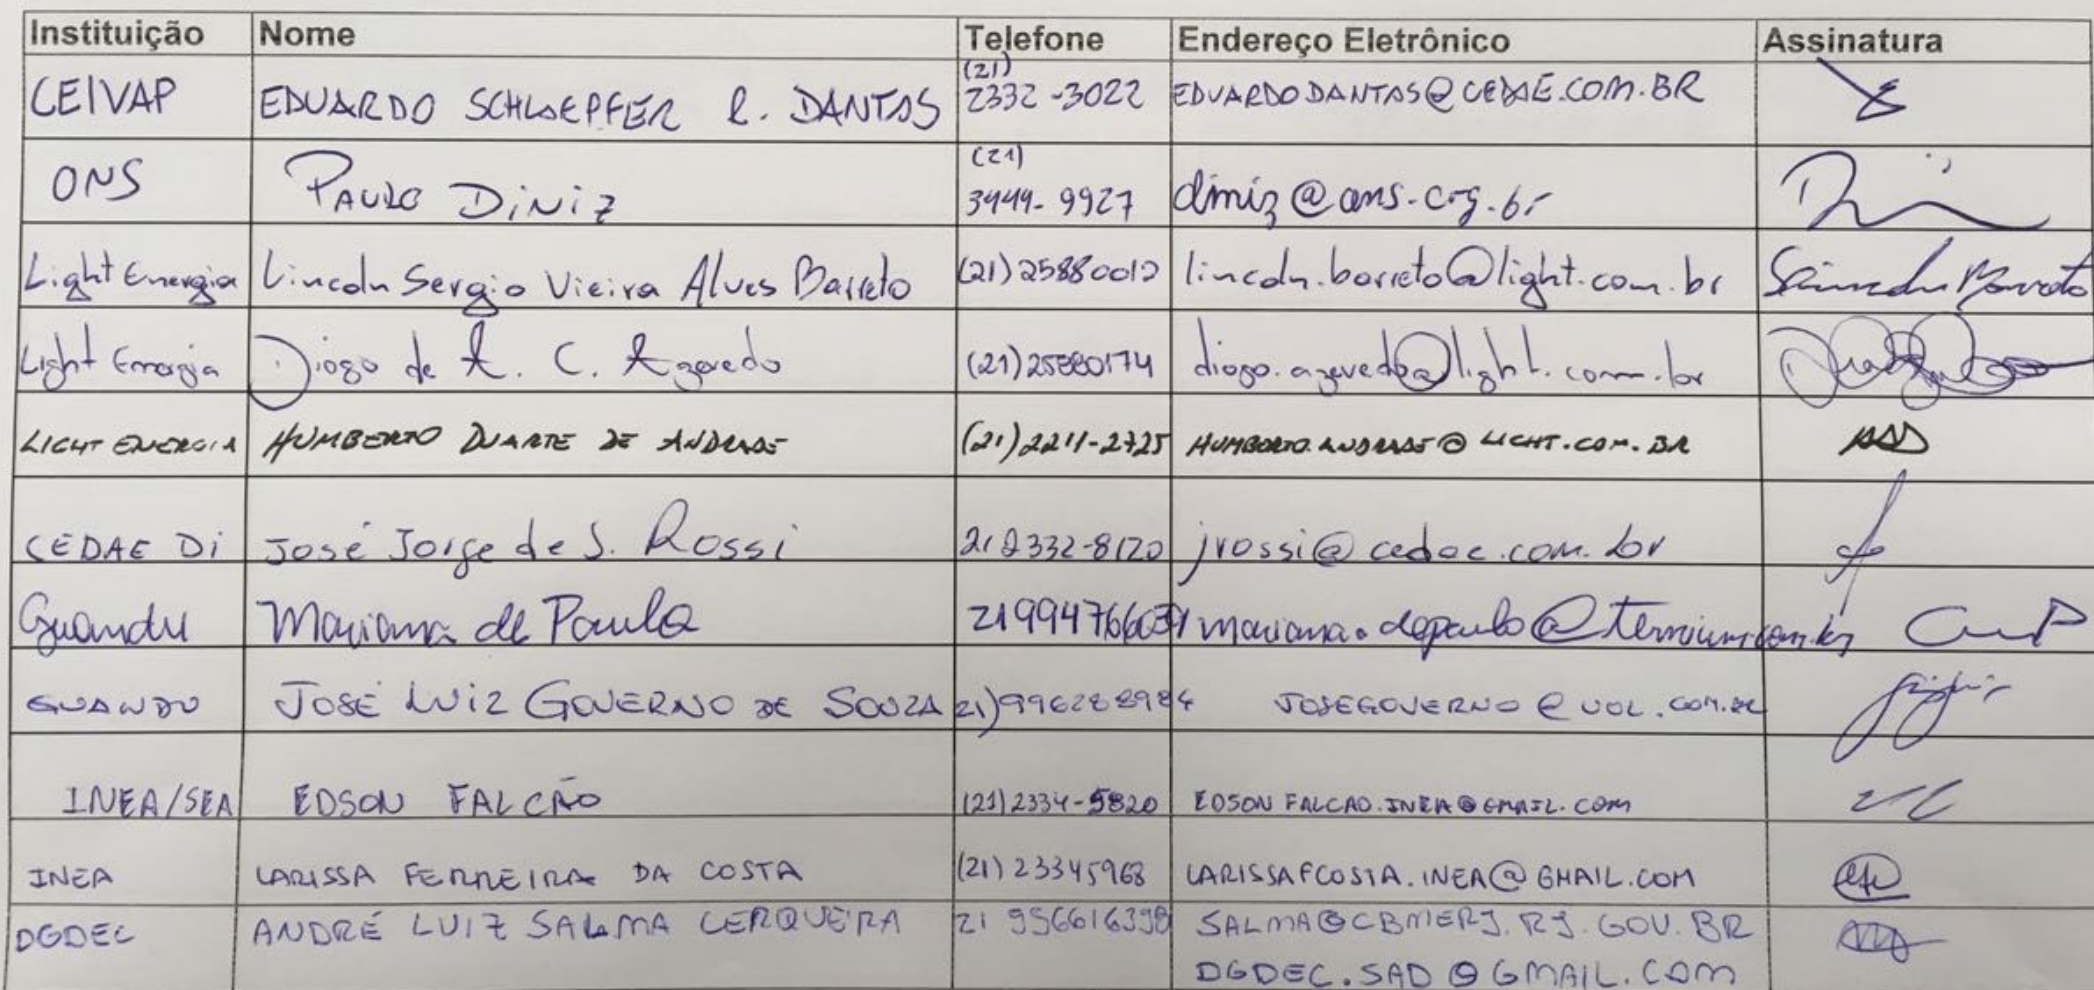 Instituição Nome Telefone Endereço Eletrônico Assinatura
CEIVAP EDUARDO SCHLAEPFER R. DANTAS (21) 2332-3022 EDUARDODANTAS@CEDAE.COM.BR
ONS PAULO DINIZ (21) 3444-9927 diniz@ons.org.br
Light Energia Lincoln Sergio Vieira Alves Barreto (21) 25880012 lincoln.barreto@light.com.br
Light Energia Diogo de A. C. Azevedo (21) 25880174 diogo.azevedo@light.com.br
LIGHT ENERGIA HUMBERTO DUARTE DE ANDRADE (21) 2211-2725 HUMBERTO.ANDRADE@LIGHT.COM.BR
CEDAE Di José Jorge de S. Rossi 21 2332-8120 jrossi@cedae.com.br
Guandu Mariana de Paula mariana.depaulo@ternium.com.br
GUANDU JOSÉ LUIZ GOVERNO DE SOUZA 21) 996288984 JOSEGOVERNO@UOL.COM.BR
INEA/SEA EDSON FALCÃO (21) 2334-5820 EDSONFALCAO.INEA@GMAIL.COM
INEA LARISSA FERREIRA DA COSTA (21) 23345968 LARISSAFCOSTA.INEA@GMAIL.COM
DGDEC ANDRÉ LUIZ SALMA CERQUEIRA 21 956616398 SALMA@CBMERJ.RJ.GOV.BR
DGDEC.SAD@GMAIL.COM